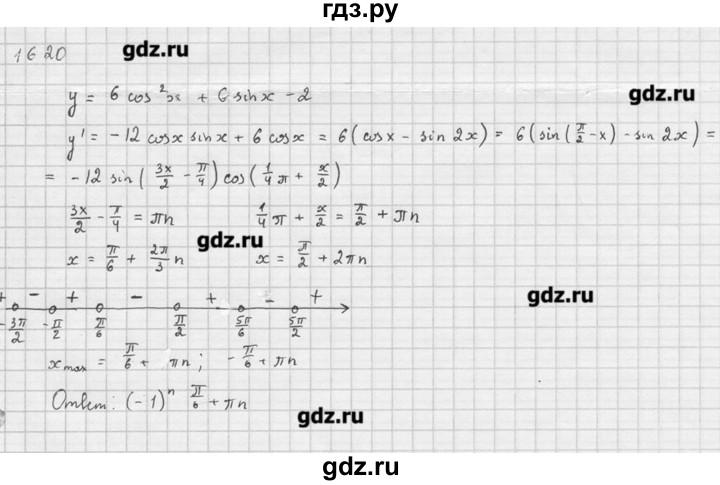 гдз.ру
1620 gdz.ru
y = 6 cos²x + 6 sinx - 2 gdz.ru
y' = -12 cosx sinx + 6 cosx = 6(cosx - sin 2x) = 6(sin(π/2 - x) - sin 2x) =
= -12 sin(3x/2 - π/4) cos(1/4 π + x/2)
3x/2 - π/4 = πn 1/4 π + x/2 = π/2 + πn
gdz.ru
x = π/6 + 2π/3 n x = π/2 + 2πn
+ - + - + - + gdz.ru
-3π/2 -π/2 π/6 π/2 5π/6 5π/2
x max = π/6 + πn; -π/6 + πn
Ответ: (-1)ⁿ π/6 + πn
gdz.ru
gdz.ru